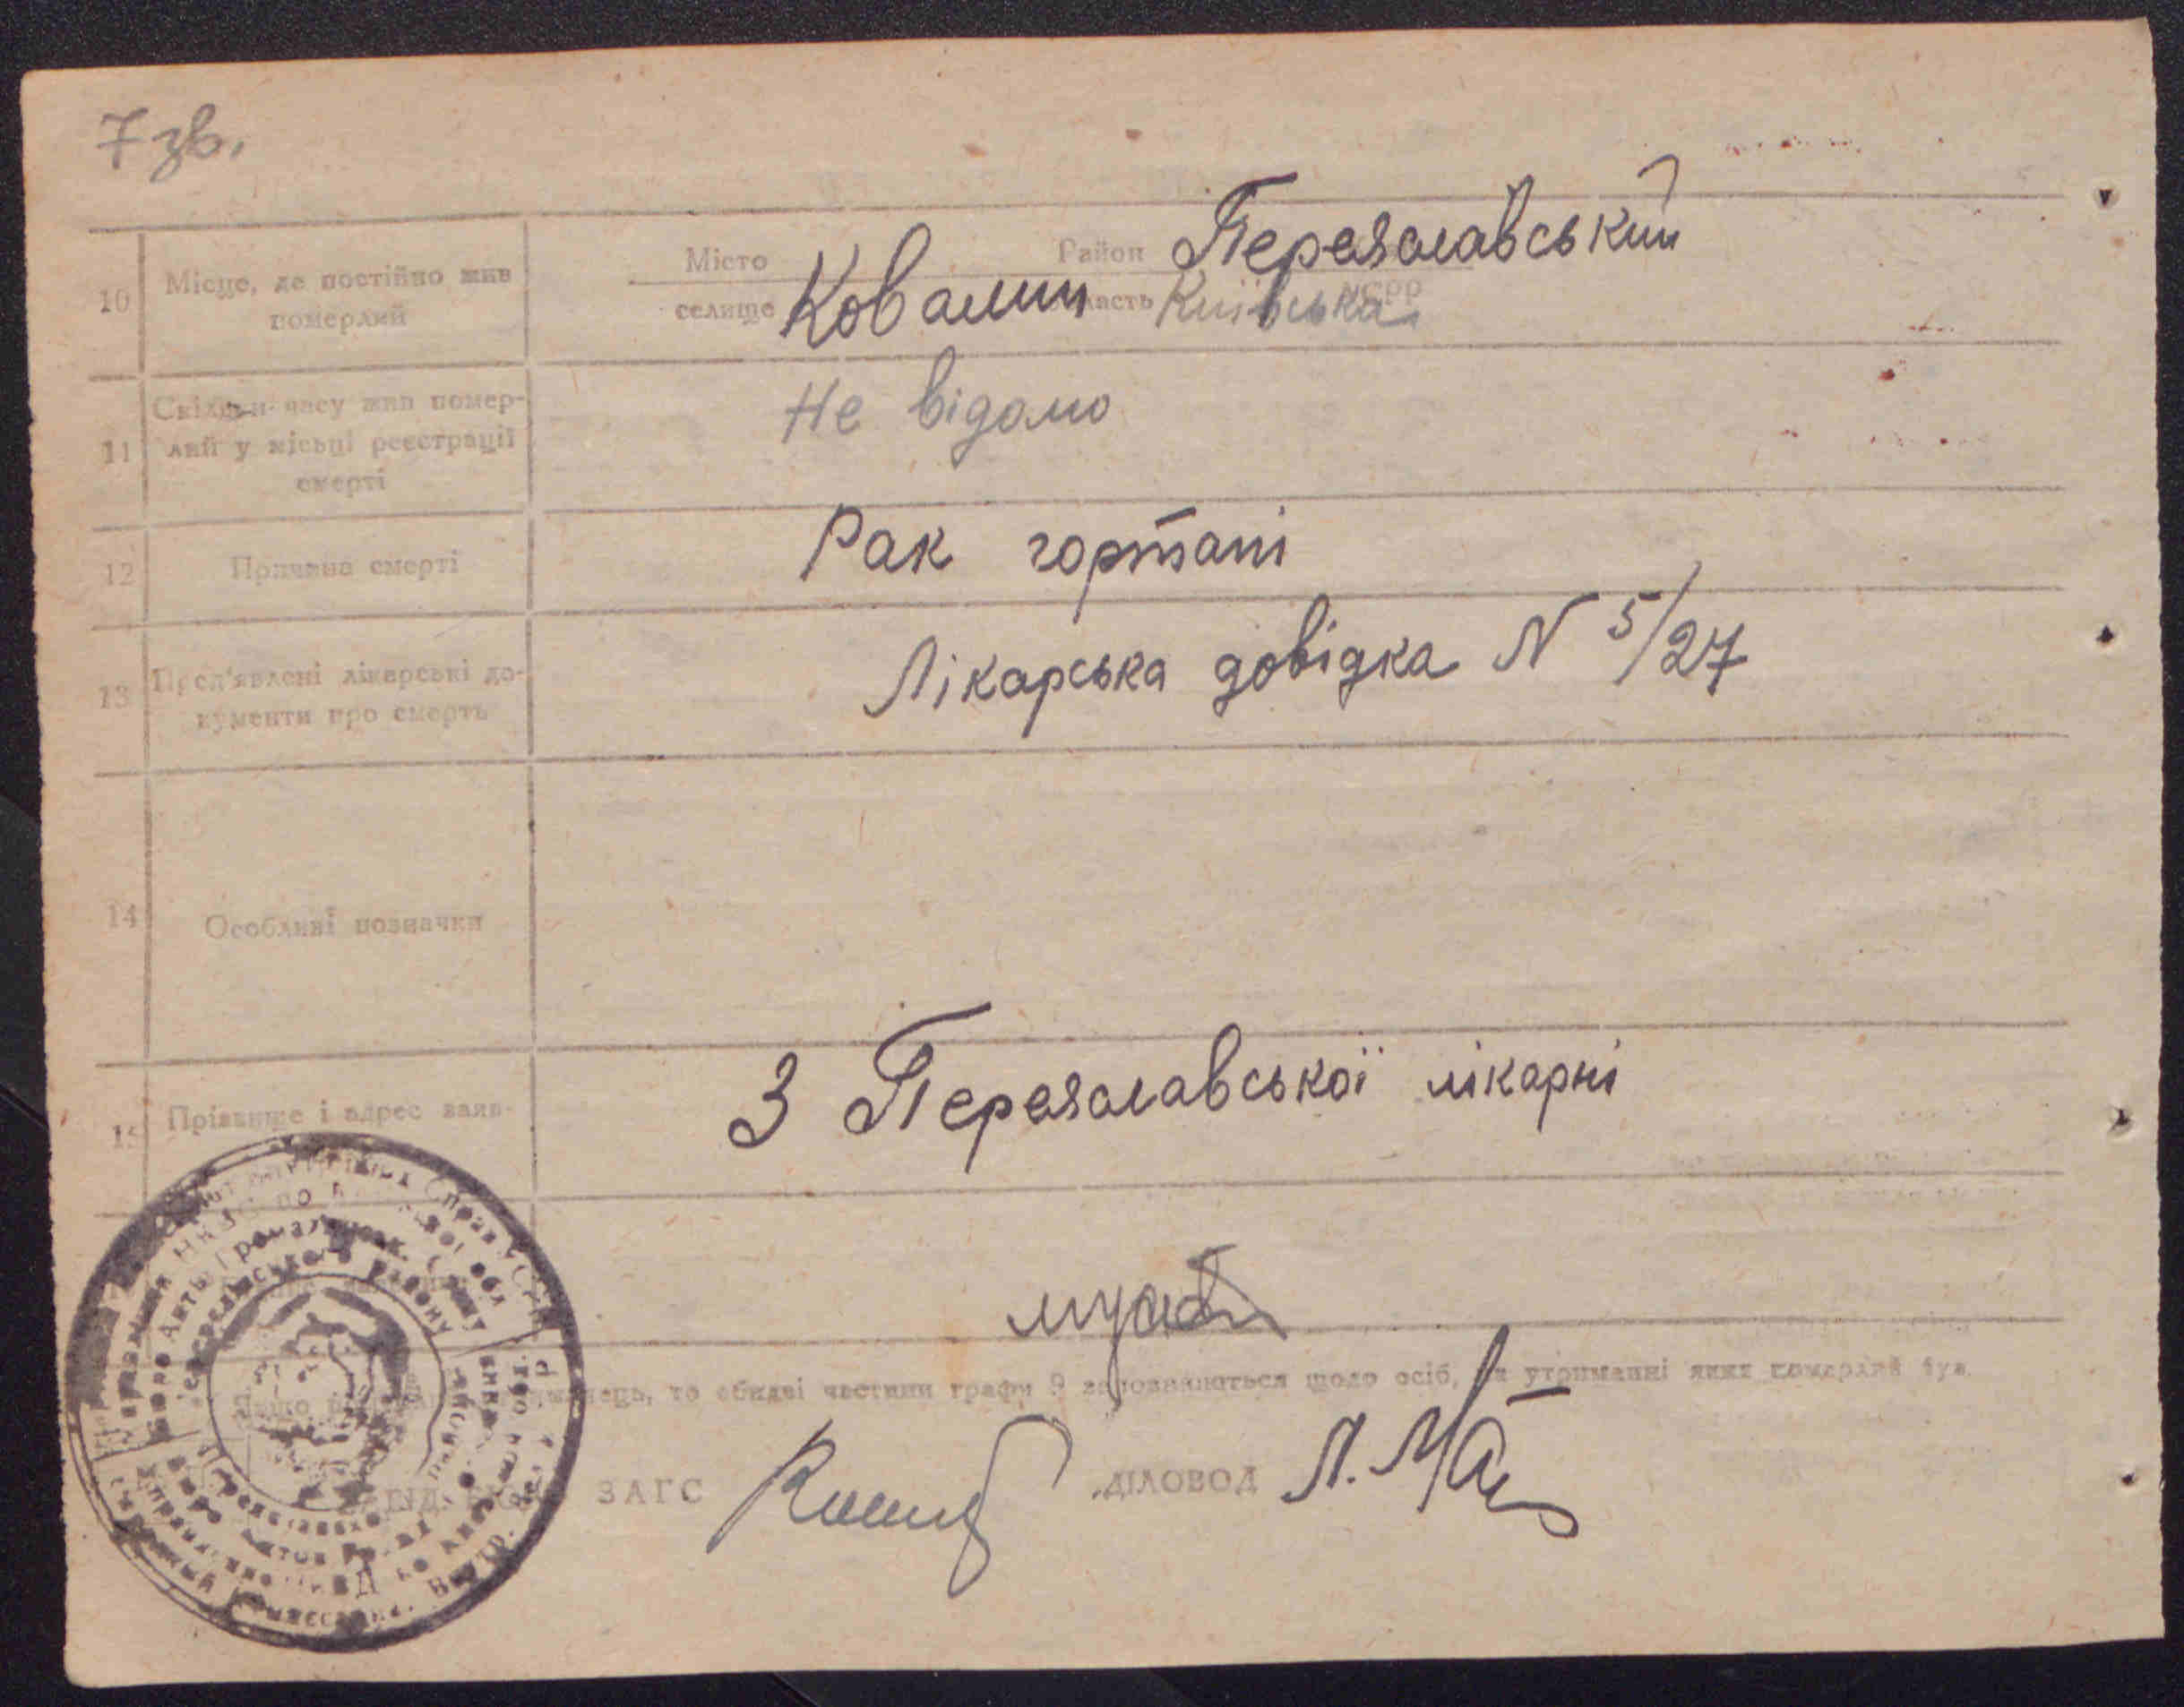 7 зв.
10 Місце, де постійно жив померлий
Місто селище Ковалин Район Переяславський
область Київська УСРР
11 Скільки часу жив помер-
лий у місьці реєстрації
смерті
Не відомо
12 Причина смерті Рак гортані
13 Пред'явлені лікарські до-
кументи про смерть
Лікарська довідка N 5/27
14 Особливі позначки
15 Прізвище і адрес заяв-
З Переяславської лікарні
то обидві частини графи 9 заповнюються щодо осіб, на утриманні яких померлий був.
ЗАГС ДІЛОВОД